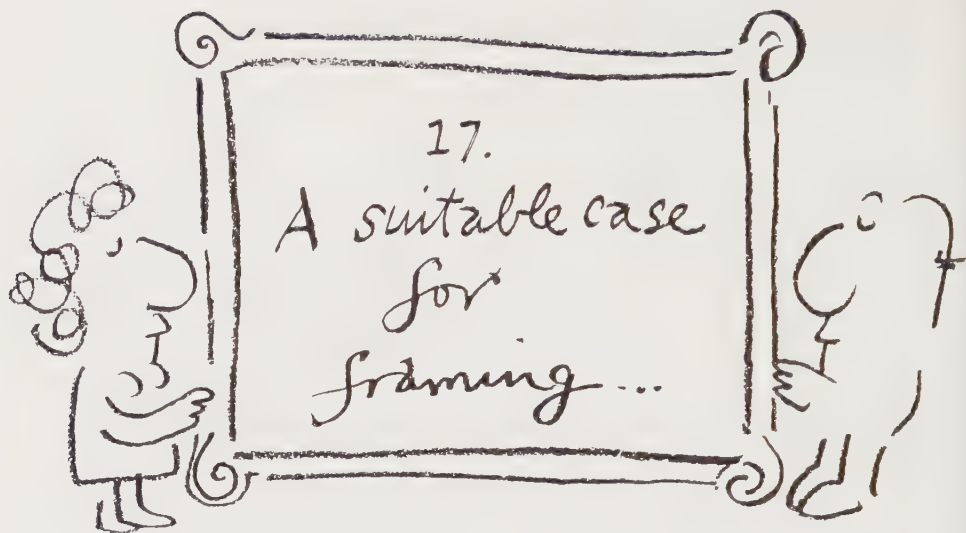 17.
A suitable case
for
framing...